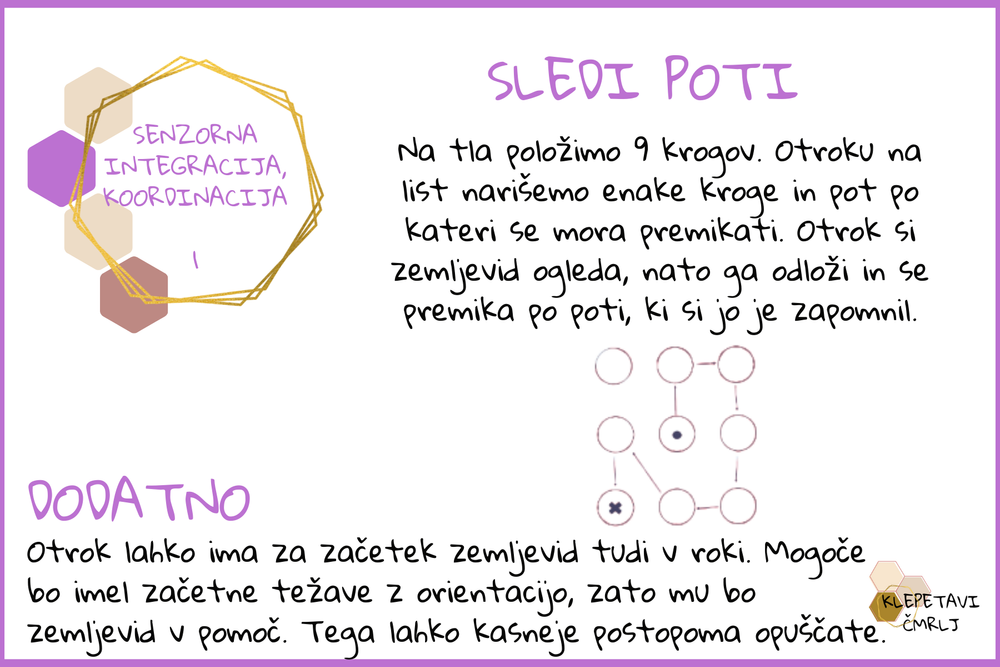 SENZORNA
INTEGRACIJA,
KOORDINACIJA
1
SLEDI POTI
Na tla položimo 9 krogov. Otroku na
list narišemo enake kroge in pot po
kateri se mora premikati. Otrok si
zemljevid ogleda, nato ga odloži in se
premika po poti, ki si jo je zapomnil.
DODATNO
Otrok lahko ima za začetek zemljevid tudi v roki. Mogoče
bo imel začetne težave z orientacijo, zato mu bo
zemljevid v pomoč. Tega lahko kasneje postopoma opuščate.
KLEPETAVI
ČMRLJ